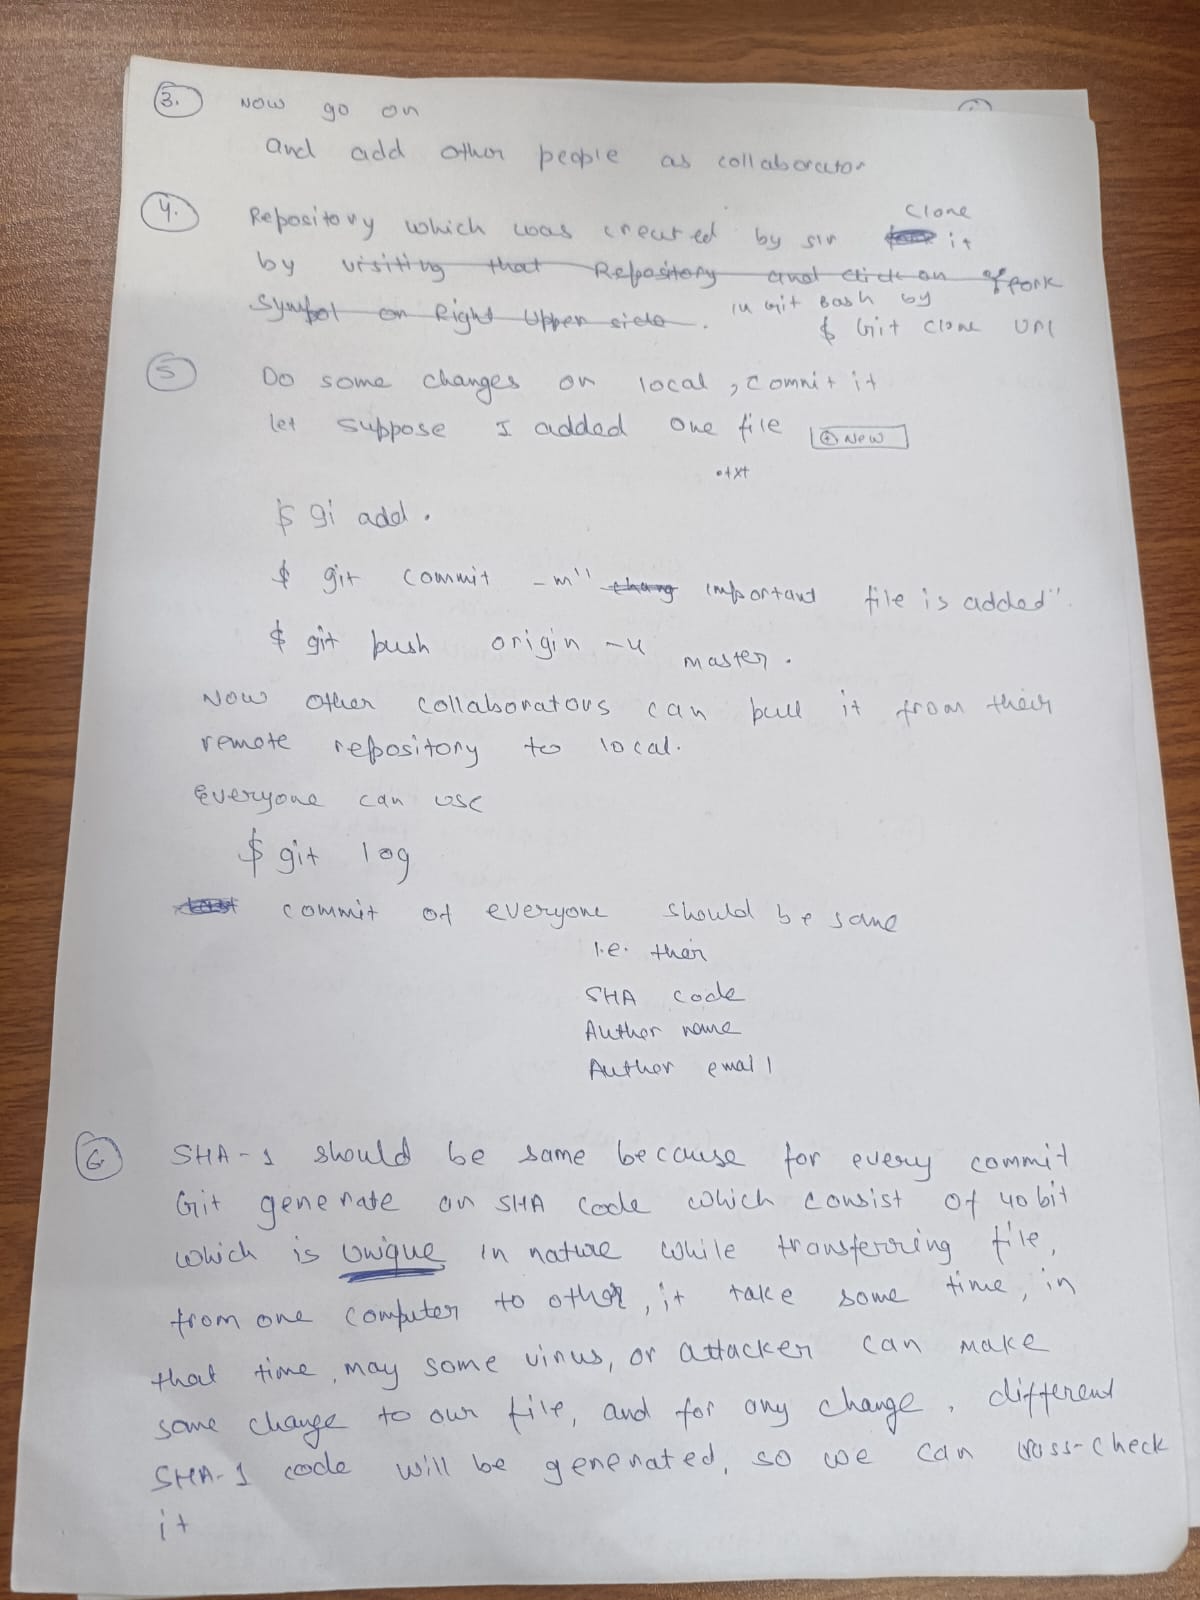 3. Now go on
and add other people as collaborator
4. Repository which was created by sir clone it
by visiting that Repository and click on of fork
symbol on Right Upper side. in Git Bash by
$ Git clone url
5 Do some changes on local, commit it
let suppose I added one file + New
.txt
$ gi add .
$ git commit -m" chang important file is added".
$ git push origin -u master.
Now other collaborators can pull it from their
remote repository to local.
Everyone can use
$ git log
commit of everyone should be same
i.e. their
SHA code
Auther name
Auther email
6 SHA-1 should be same because for every commit
Git generate an SHA code which consist of 40 bit
which is unique in nature while transferring file,
from one computer to other, it take some time, in
that time, may some virus, or attacker can make
some change to our file, and for any change, different
SHA-1 code will be generated, so we can cross-check
it